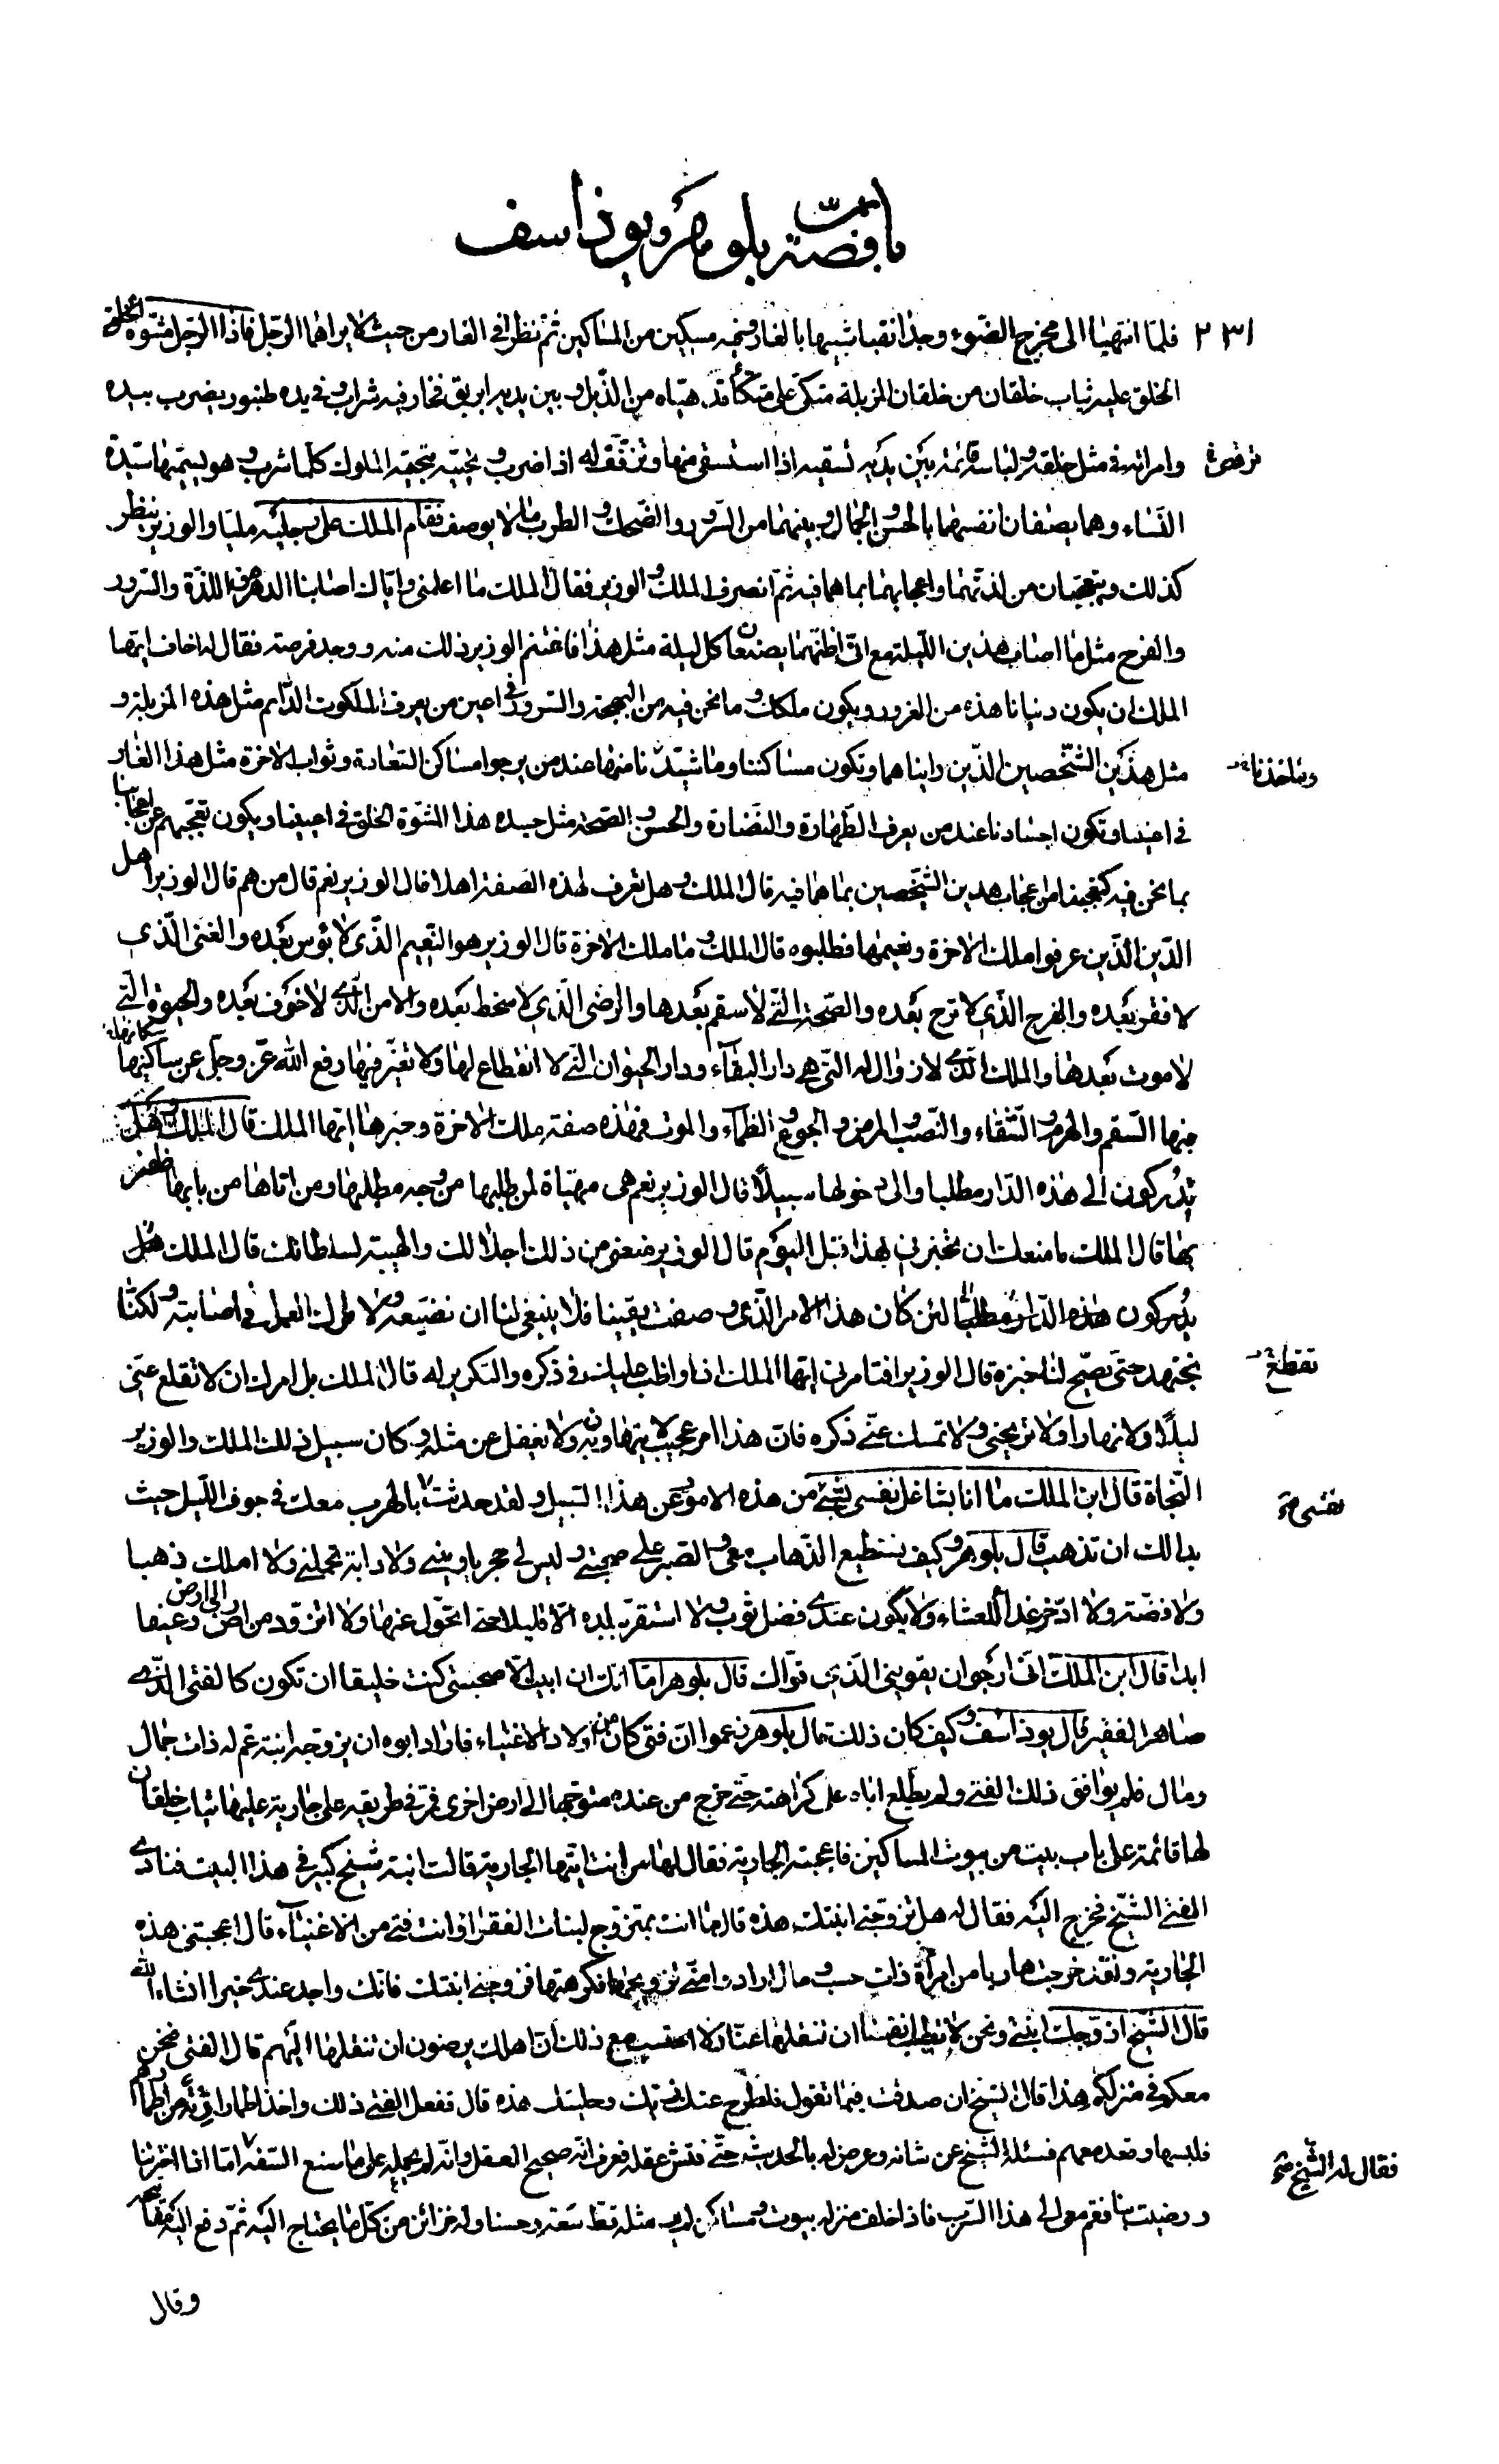 باقى قصة بلوهر ويوذاسف
٢٣١
فلما انتهيا الى مخرج الضوء وجدا نقبا شبيها بالغار وفيه مسكين من المساكين ثم نظرا في الغار من حيث لا يراهما الرجل فاذا الرجل مشوّه الخلق
الخلق عليه ثياب خلقان من خلقان المزبلة متكئ على متكأ قد هيّاه من الزبل وبين يديه ابريق فخار فيه شراب وفي يده طنبور يضرب بيده
وامراته في مثل خلقه ولباسه قائمة بين يديه تسقيه اذا استسقى منها وترقص له اذا ضرب وتحييه بتحية الملوك كلما شرب وهو يسميها سيدة
ترقص
النساء وهما يصفان انفسهما بالحسن والجمال وبينهما من السرور والضحك والطرب ما لا يوصف فقام الملك على رجليه مليا والوزير ينظر
كذلك ويتعجبان من لذتهما واعجابهما بما هما فيه ثم انصرف الملك والوزير فقال الملك ما اعلمني واياك اصابنا الدهر من اللذة والسرور
والفرح مثل ما اصاب هذين الليلة مع اني اظنهما يصنعان كل ليلة مثل هذا فاغتنم الوزير ذلك منه ووجد فرصة فقال له اخاف ايها
الملك ان يكون دنيانا هذه من الغرور ويكون ملكك وما نحن فيه من البهجة والسرور في اعين من يعرف الملكوت الدائم مثل هذه المزبلة و
مثل هذين الشخصين الذين رايناهما وتكون مساكننا وما شيّدنا منها عند من يرجوا مساكن السعادة وثواب الاخرة مثل هذا الغار
في اعيننا وتكون اجسادنا عند من يعرف الطهارة والنضارة والحسن والصحة مثل جسده هذا المشوّه الخلق في اعيننا ويكون تعجبهم عن اعجابنا
بما نحن فيه كتعجبنا من اعجاب هذين الشخصين بما هما فيه قال الملك وهل تعرف لهذه الصفة اهلا قال الوزير نعم قال من هم قال الوزير اهل
الدين الذين عرفوا ملك الاخرة ونعيمها فطلبوه قال الملك وما ملك الاخرة قال الوزير هو النعيم الذي لا بؤس بعده والغنى الذي
لا فقر بعده والفرح الذي لا ترح بعده والصحة التي لا سقم بعدها والرضى الذي لا سخط بعده والامن الذي لا خوف بعده والحيوة التي
لا موت بعدها والملك الذي لا زوال له التي هي دار البقاء ودار الحيوان التي لا انقطاع لها ولا تغير فيها رفع الله عز وجل عن ساكنيها
فيها السقم والهرم والشقاء والنصب والمرض والجوع والظمآء والموت فهذه صفة ملك الاخرة وخبرها ايها الملك قال الملك وهل
تدركون الى هذه الدار مطلبا والى دخولها سبيلا قال الوزير نعم هي مهياة لمن طلبها من وجه مطلبها ومن اتاها من بابها ظفر
بها قال الملك ما منعك ان تخبرني بهذا قبل اليوم قال الوزير منعني من ذلك اجلالك والهيبة لسلطانك قال الملك
لئن كان هذا الامر الذي وصفت يقينا فلا ينبغي لنا ان نضيعه ولا نترك العمل في اصابته ولكنا
نجتهد حتى يصح لنا خبره قال الوزير افتامرني ايها الملك ان اواظب عليك في ذكره والتكرير له قال الملك بل امرك ان لا تقلع عني
تقطع
ليلا ولا نهارا ولا تريحني ولا تمسك عني ذكره فان هذا امر عجيب لا يتهاون به ولا يغفل عن مثله وكان سبيل ذلك الملك والوزير
النجاة قال ابن الملك ما انا بشاغل نفسي بشيء من هذه الامور عن هذا السبيل ولقد حدثت بالهرب معك في جوف الليل حيث
نفسي
بدا لك ان تذهب قال بلوهر وكيف تستطيع الذهاب معي والصبر على صحبتي وليس لي جحر ياويني ولا دابة تحملني ولا املك ذهبا
ولا فضة ولا ادخر غذاء للعشاء ولا يكون عندي فضل ثوب ولا استقر ببلدة الا قليلا حتى اتحول عنها ولا اتزود من ارض الى ارض رغيفا
ابدا قال ابن الملك اني ارجو ان يقويني الذي قوّاك قال بلوهر اما انك ان ابيت الا صحبتي كنت خليقا ان تكون كالفتى الذي
صاهر الفقير قال يوذاسف وكيف كان ذلك قال بلوهر زعموا ان فتى كان من اولاد الاغنياء فاراد ابوه ان يزوجه ابنة عم له ذات جمال
ومال فلم يوافق ذلك الفتى ولم يطلع اباه على كراهته حتى خرج من عنده متوجها الى ارض اخرى فمر في طريقه على جارية عليها ثياب خلقان
لها قائمة على باب بيت من بيوت المساكين فاعجبته الجارية فقال لها من انت ايتها الجارية قالت ابنة شيخ كبير في هذا البيت فنادى
الفتى الشيخ فخرج اليه فقال له هل تزوجني ابنتك هذه قال ما انت بمتزوج لبنات الفقراء وانت فتى من الاغنياء قال اعجبتني هذه
الجارية ولقد خرجت هاربا من امراة ذات حسب ومال ارادوا مني تزويجها فكرهتها فزوجني ابنتك فانك واجد عندي خيرا انشاء الله
قال الشيخ ازوجك ابنتي ونحن لا تطيب انفسنا ان تنقلها عنا ولا احتسب مع ذلك ان اهلك يرضون ان تنقلها اليهم قال الفتى فنحن
معكم في منزلكم هذا قال الشيخ ان صدقت فيما تقول فاطرح عنك زيك وحليتك هذه قال ففعل الفتى ذلك واخذ اطمارا رثة من اطمارهم
فلبسها وقعد معهم فسئله الشيخ عن شانه وعرض له بالحديث حتى فتش عقله فعرف انه صحيح العقل وانه لم يحمله على ما صنع السفه اما اذا اخترتنا
فقال له الشيخ
ورضيت بنا فقم معي الى هذا السرب فاذا خلف منزله بيوت ومساكن لم ير مثلها قط سعة وحسنا وله خزائن من كل ما يحتاج اليه ثم دفع اليه مفاتيحه
وقال